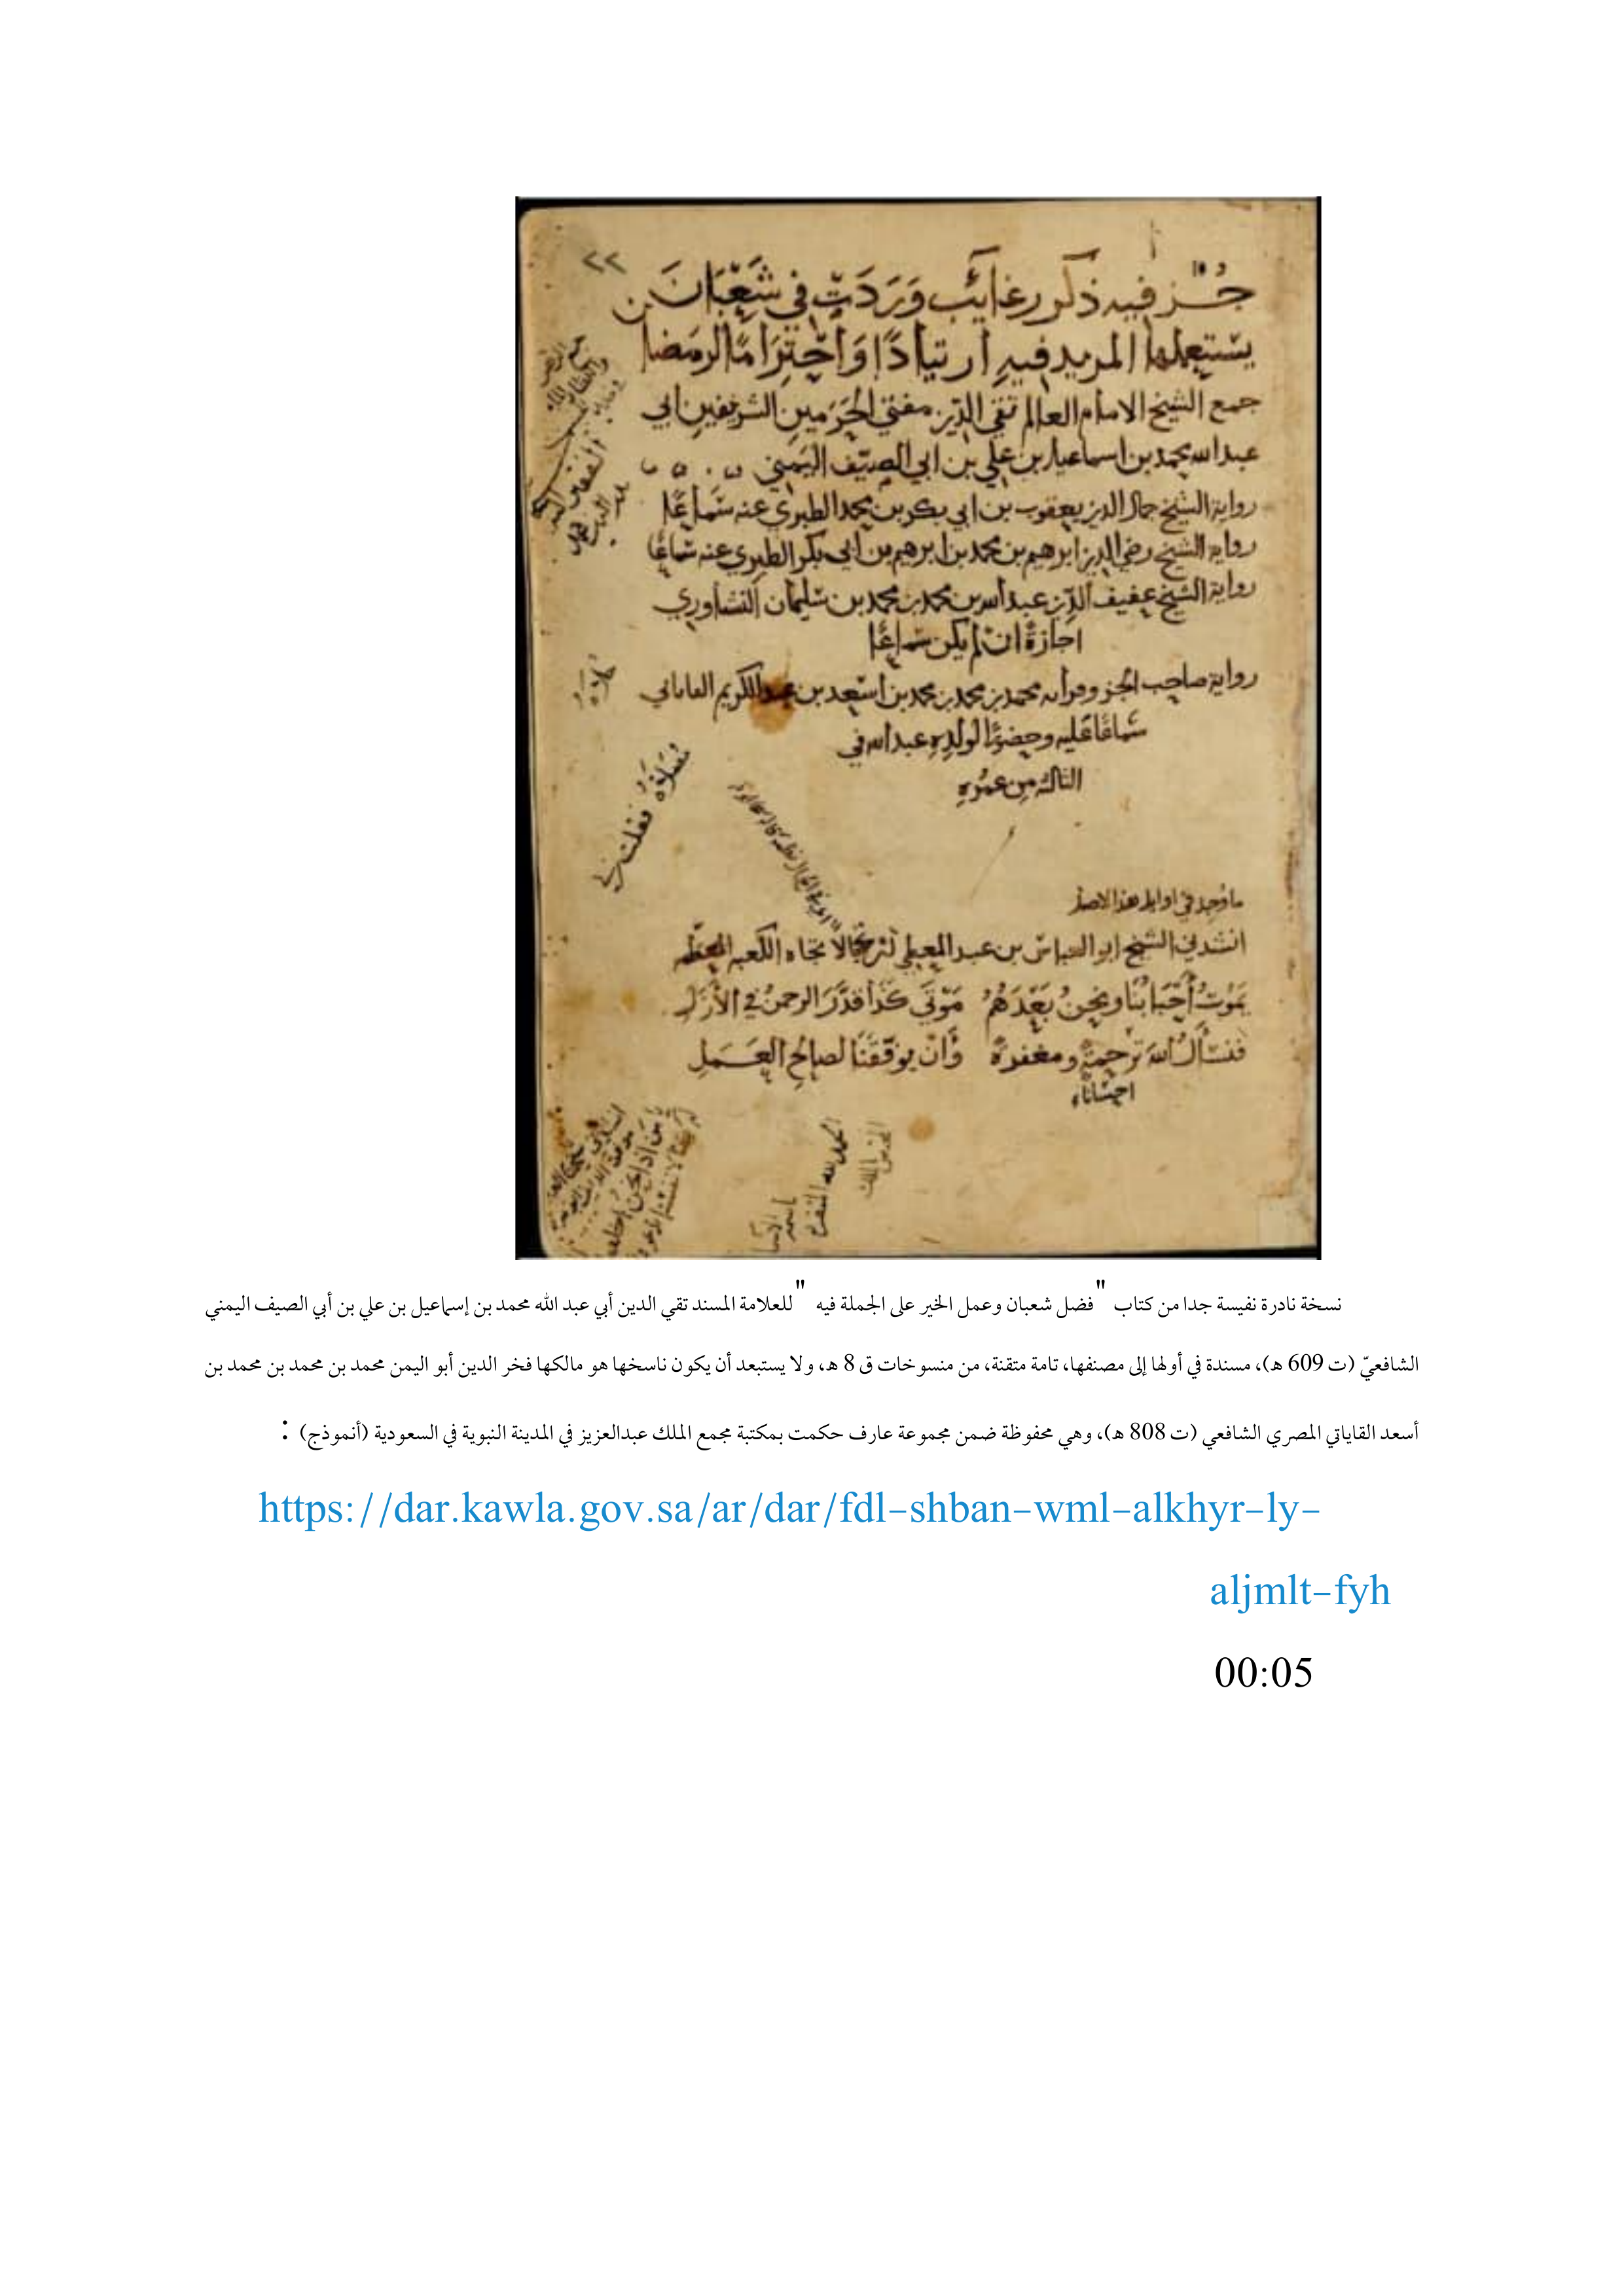 ٢٢
جُزْء فيه ذكر رغايب وَرَدَتْ في شَعْبَانَ
يستعملها المريد فيهِ ارتيادًا وَاحْتِرَامًا لرمضان
جمع الشيخ الامام العالم تقي الدين مفتي الحَرَمينِ الشريفينِ ابي
عبد الله محمد بن اسماعيل بن علي بن ابي الصيّف اليَمني
رواية الشيخ جمال الدين يعقوب بن ابي بكر بن محمد الطبري عنه سَمَاعًا
رواية الشيخ رضي الدين ابرهيم بن محمد بن ابرهيم بن ابي بكر الطبري عنه سماعًا
رواية الشيخ عفيف الدين عبد الله بن محمد بن محمد بن سليمان النشاوري
اجازةً ان لم يكن سماعًا
رواية صاحب الجزء وقرأه محمد بن محمد بن محمد بن اسعد بن عبد الكريم القاياتي
سماعًا عليه وحضورًا لولدِهِ عبد الله في
الثالثة من عمُرهِ
ما وُجد في اوايل هذا الاصل
انشدني الشيخ ابو العباس بن عبد المعطي ارتجالًا تجاه الكعبه المعظمه
يَمُوتُ أَحْبَابُنَا ونحنُ بَعْدَهُمُ مَوْتَى كَذَا قدَّرَ الرحمنُ في الأَزَلِ
فنسْأَلُ اللهَ تَرحمةً ومغفرةً وَأَنْ يوَفّقَنَا لصالحِ العَمَلِ
احسانًا
الحمد لله
نسخة نادرة نفيسة جدا من كتاب "فضل شعبان وعمل الخير على الجملة فيه " للعلامة المسند تقي الدين أبي عبد الله محمد بن إسماعيل بن علي بن أبي الصيف اليمني
الشافعيّ (ت 609 هـ)، مسندة في أولها إلى مصنفها، تامة متقنة، من منسوخات ق 8 هـ، ولا يستبعد أن يكون ناسخها هو مالكها فخر الدين أبو اليمن محمد بن محمد بن محمد بن
أسعد القاياتي المصري الشافعي (ت 808 هـ)، وهي محفوظة ضمن مجموعة عارف حكمت بمكتبة مجمع الملك عبدالعزيز في المدينة النبوية في السعودية (أنموذج) :
https://dar.kawla.gov.sa/ar/dar/fdl-shban-wml-alkhyr-ly-
aljmlt-fyh
00:05